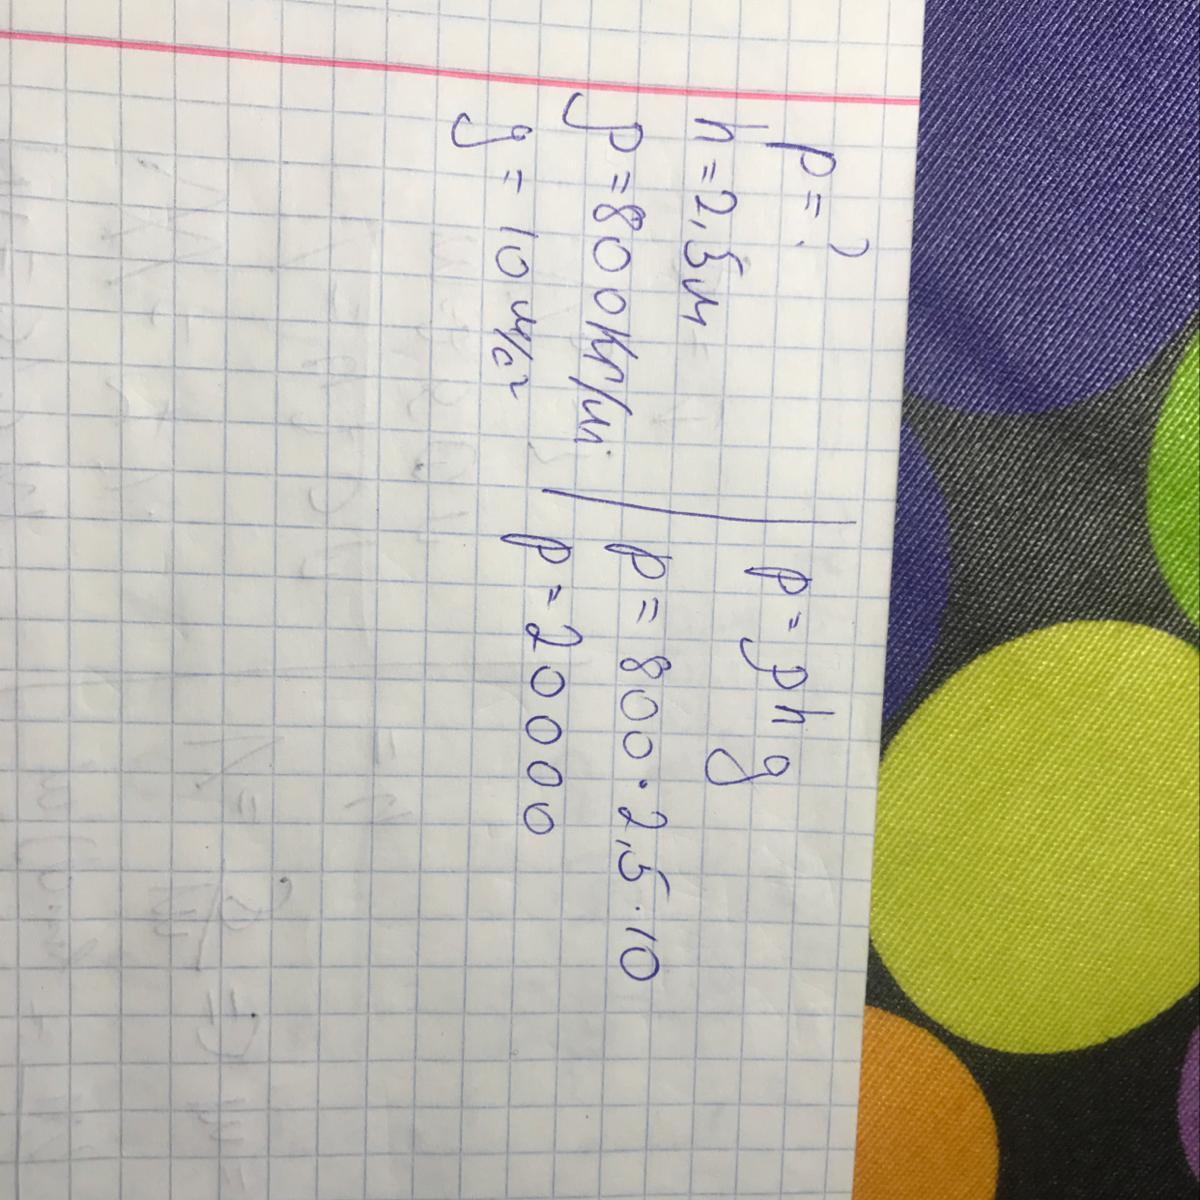 p = ?
h = 2,5м
ρ = 800кг/м
g = 10 м/с²
p = ρhg
p = 800 · 2,5 · 10
p = 20000